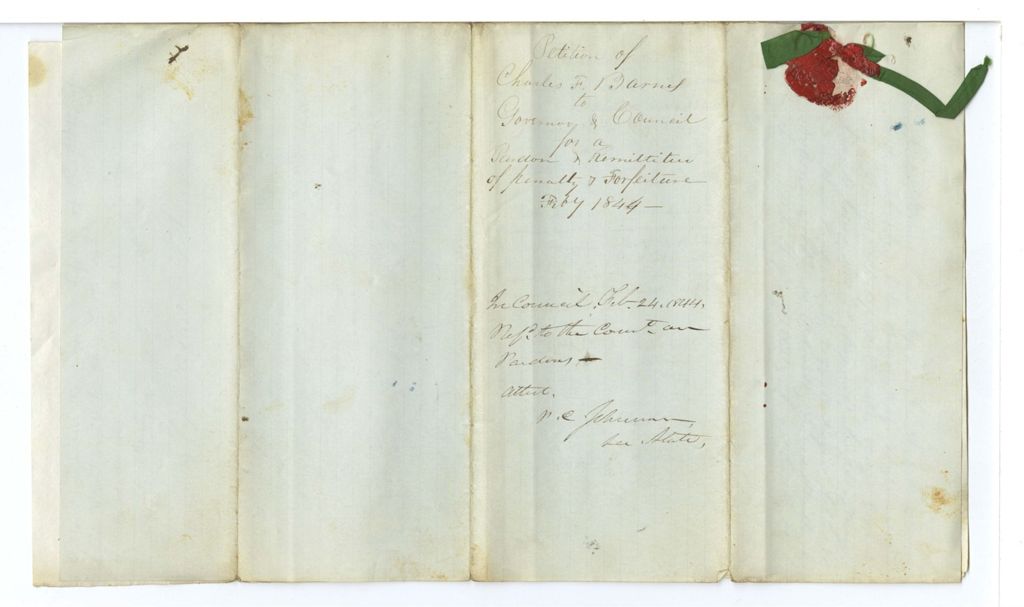 Petition of
Charles F. Barnes
to
Governor & Council
for a
Pardon & Remittitur
of penalty & Forfeiture
Feby 1844—
In Council, Feb. 24. 1844.
Refd to the Comte on
Pardons,—
Attest.
P. C. Johnson,
Sec State,